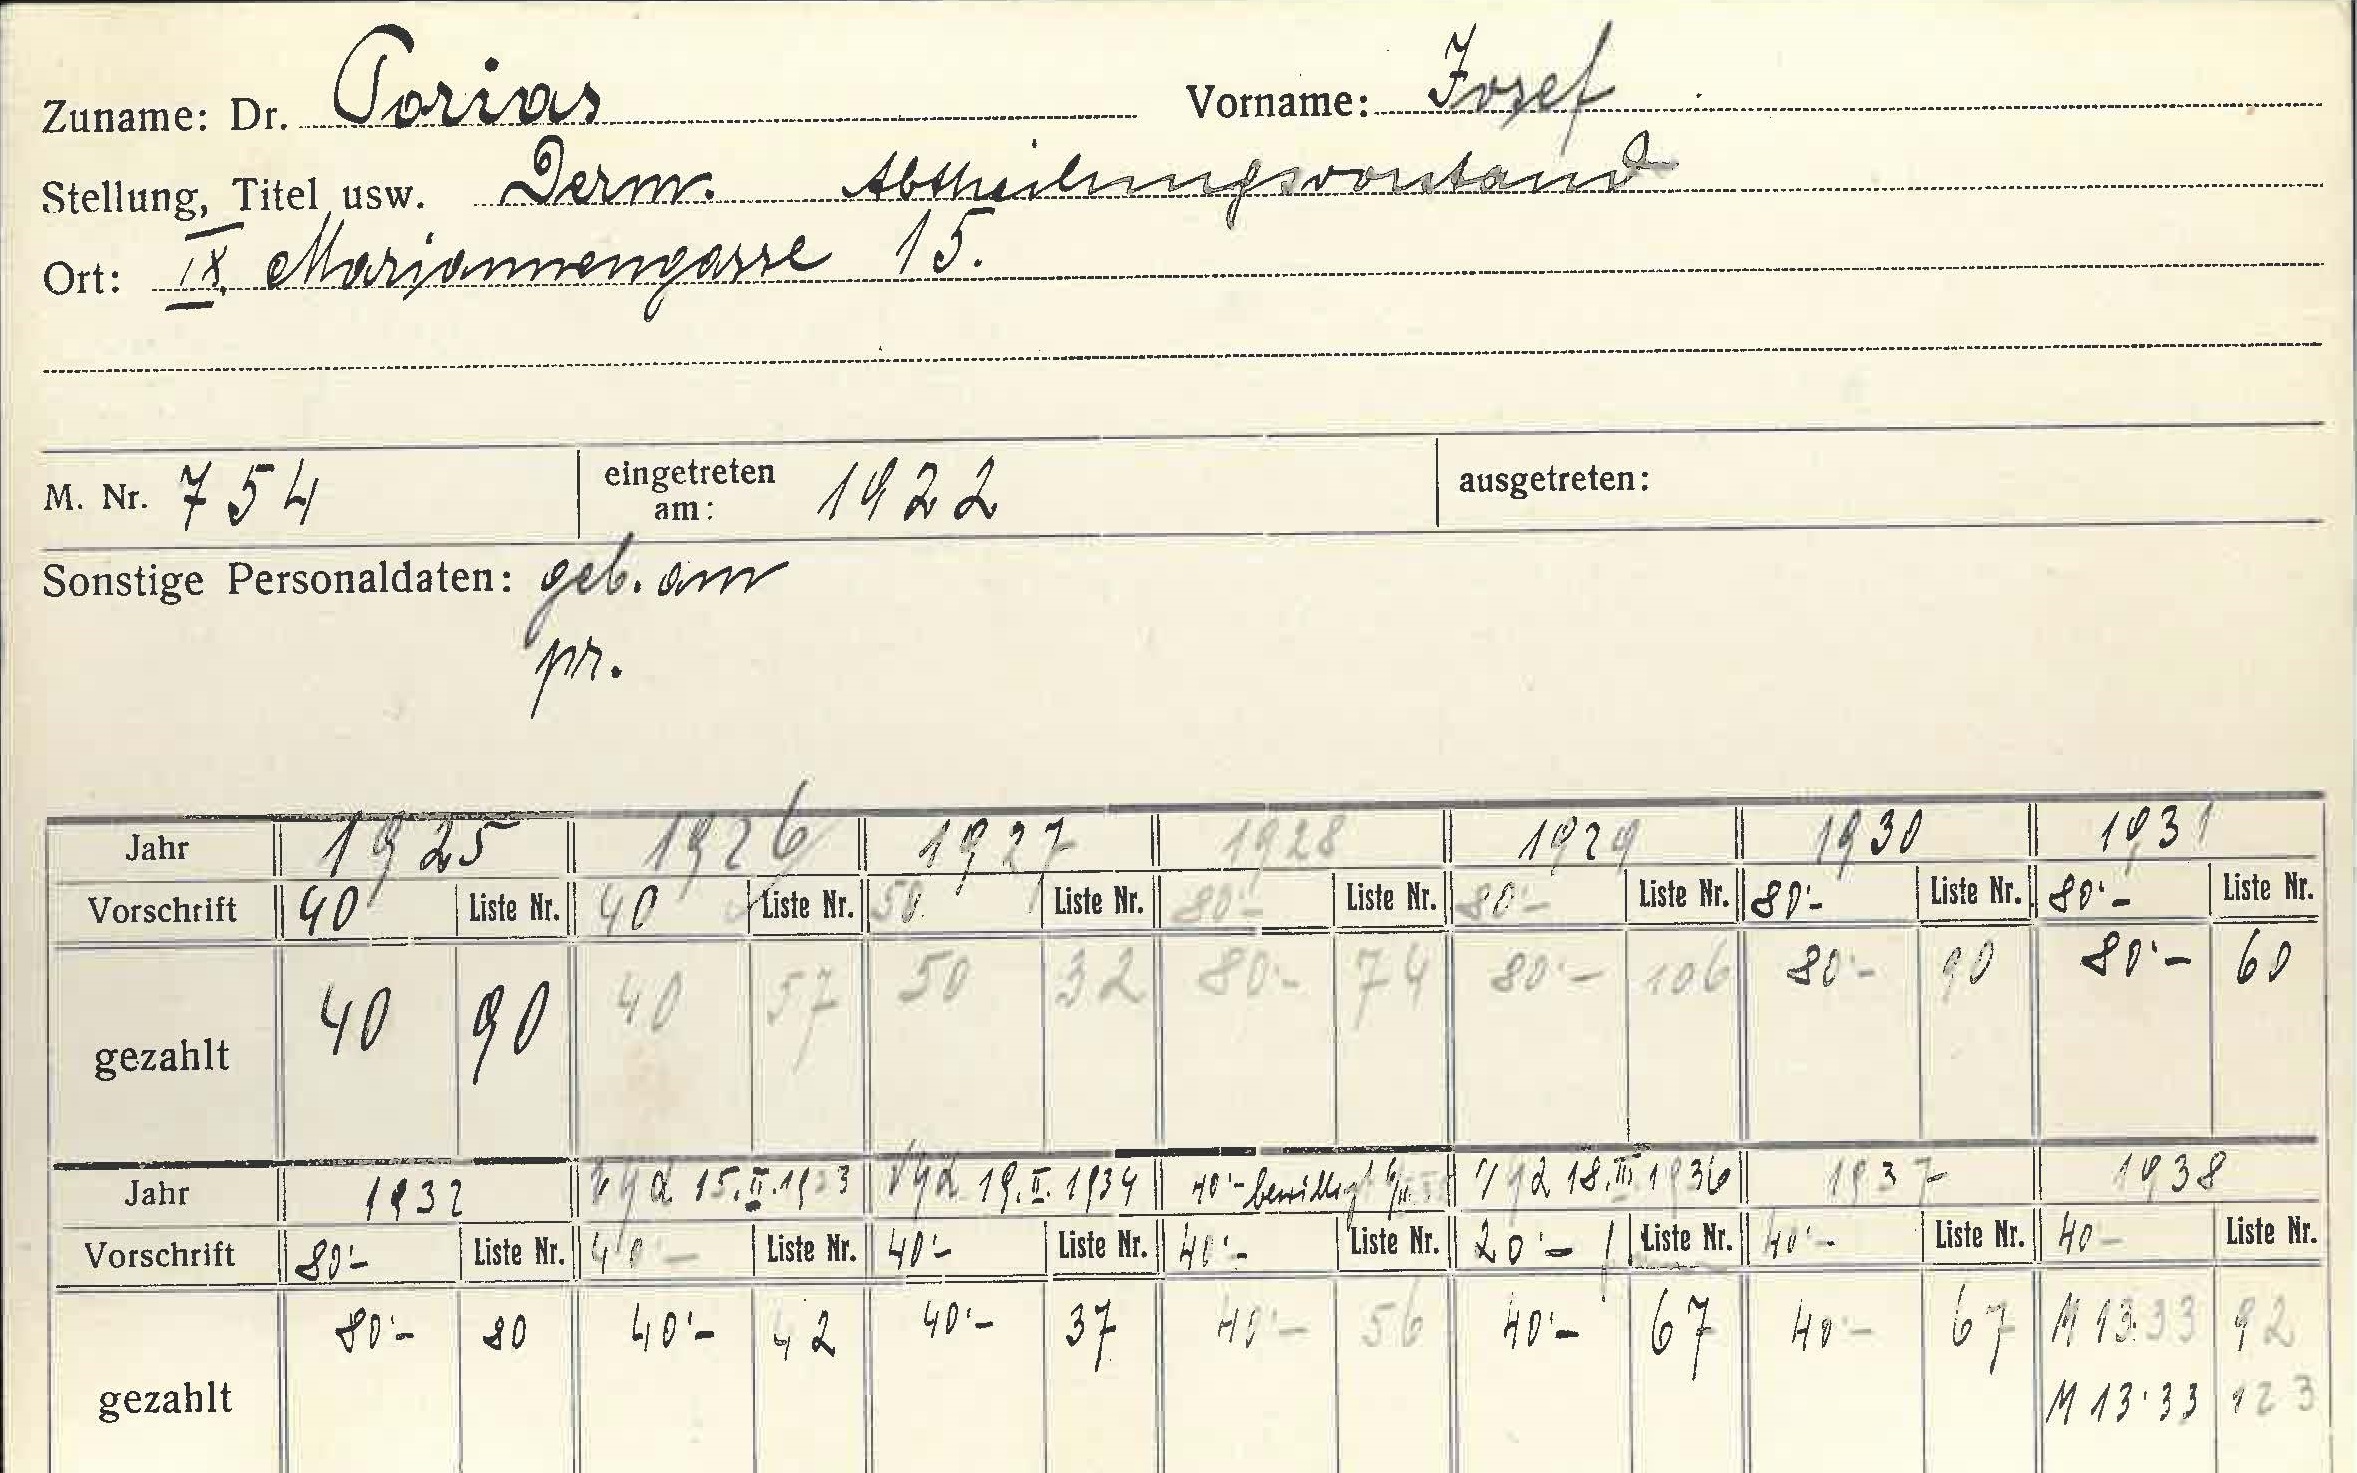 Zuname: Dr. Porias Vorname: Josef
Stellung, Titel usw. Derm. Abtheilungsvorstand
Ort: IX. Mariannengasse 15.
M. Nr. 754 eingetreten am: 1922 ausgetreten:
Sonstige Personaldaten: geb. am
pr.
Jahr 1925 1926 1927 1928 1929 1930 1931
Vorschrift 40 Liste Nr. 40 Liste Nr. 50 Liste Nr. 80·- Liste Nr. 80·- Liste Nr. 80·- Liste Nr. 80·- Liste Nr.
gezahlt 40 90 40 57 50 32 80·- 74 80·- 106 80·- 90 80·- 60
Jahr 1932 15.II.1933 19.II.1934 40·- bewilligt 18.III.1936 1937 1938
Vorschrift 80·- Liste Nr. 40·- Liste Nr. 40·- Liste Nr. 40·- Liste Nr. 20·- Liste Nr. 40·- Liste Nr. 40- Liste Nr.
gezahlt 80·- 80 40·- 42 40·- 37 40·- 56 40·- 67 40·- 67 M 13·33 92
M 13·33 123